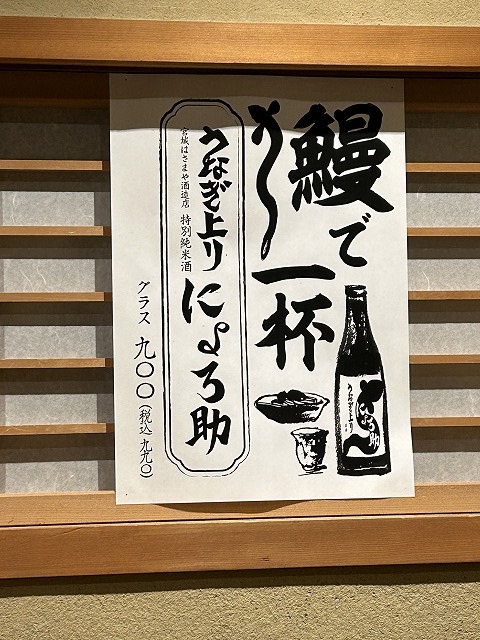 鰻で
一杯
うなぎ上り にょろ助
宮城はさまや酒造店 特別純米酒
グラス 九〇〇(税込 九九〇)
うなぎ上り
にょろ助